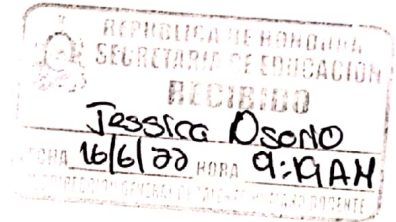 REPUBLICA DE HONDURAS
SECRETARIA DE EDUCACION
RECIBIDO
Jessica Osorio
16/6/22 HORA 9:19AM
DOCENTE